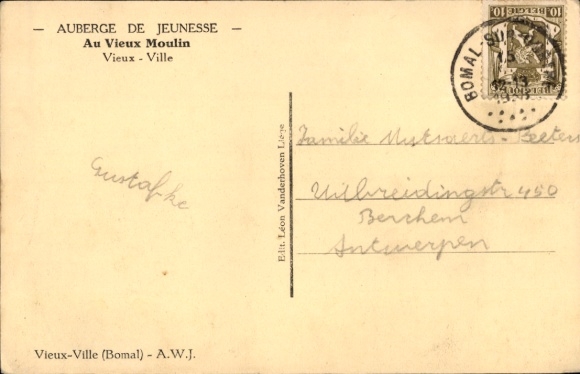 — AUBERGE DE JEUNESSE —
Au Vieux Moulin
Vieux - Ville
10 BELGIE 10
BOMAL-SUR-
12-13
BELGIQUE
Edit. Léon Vanderhoven Liege
Gustafke
Familie Beeters
Uitbreidingstr 450
Berchem
Antwerpen
Vieux-Ville (Bomal) - A.W.J.